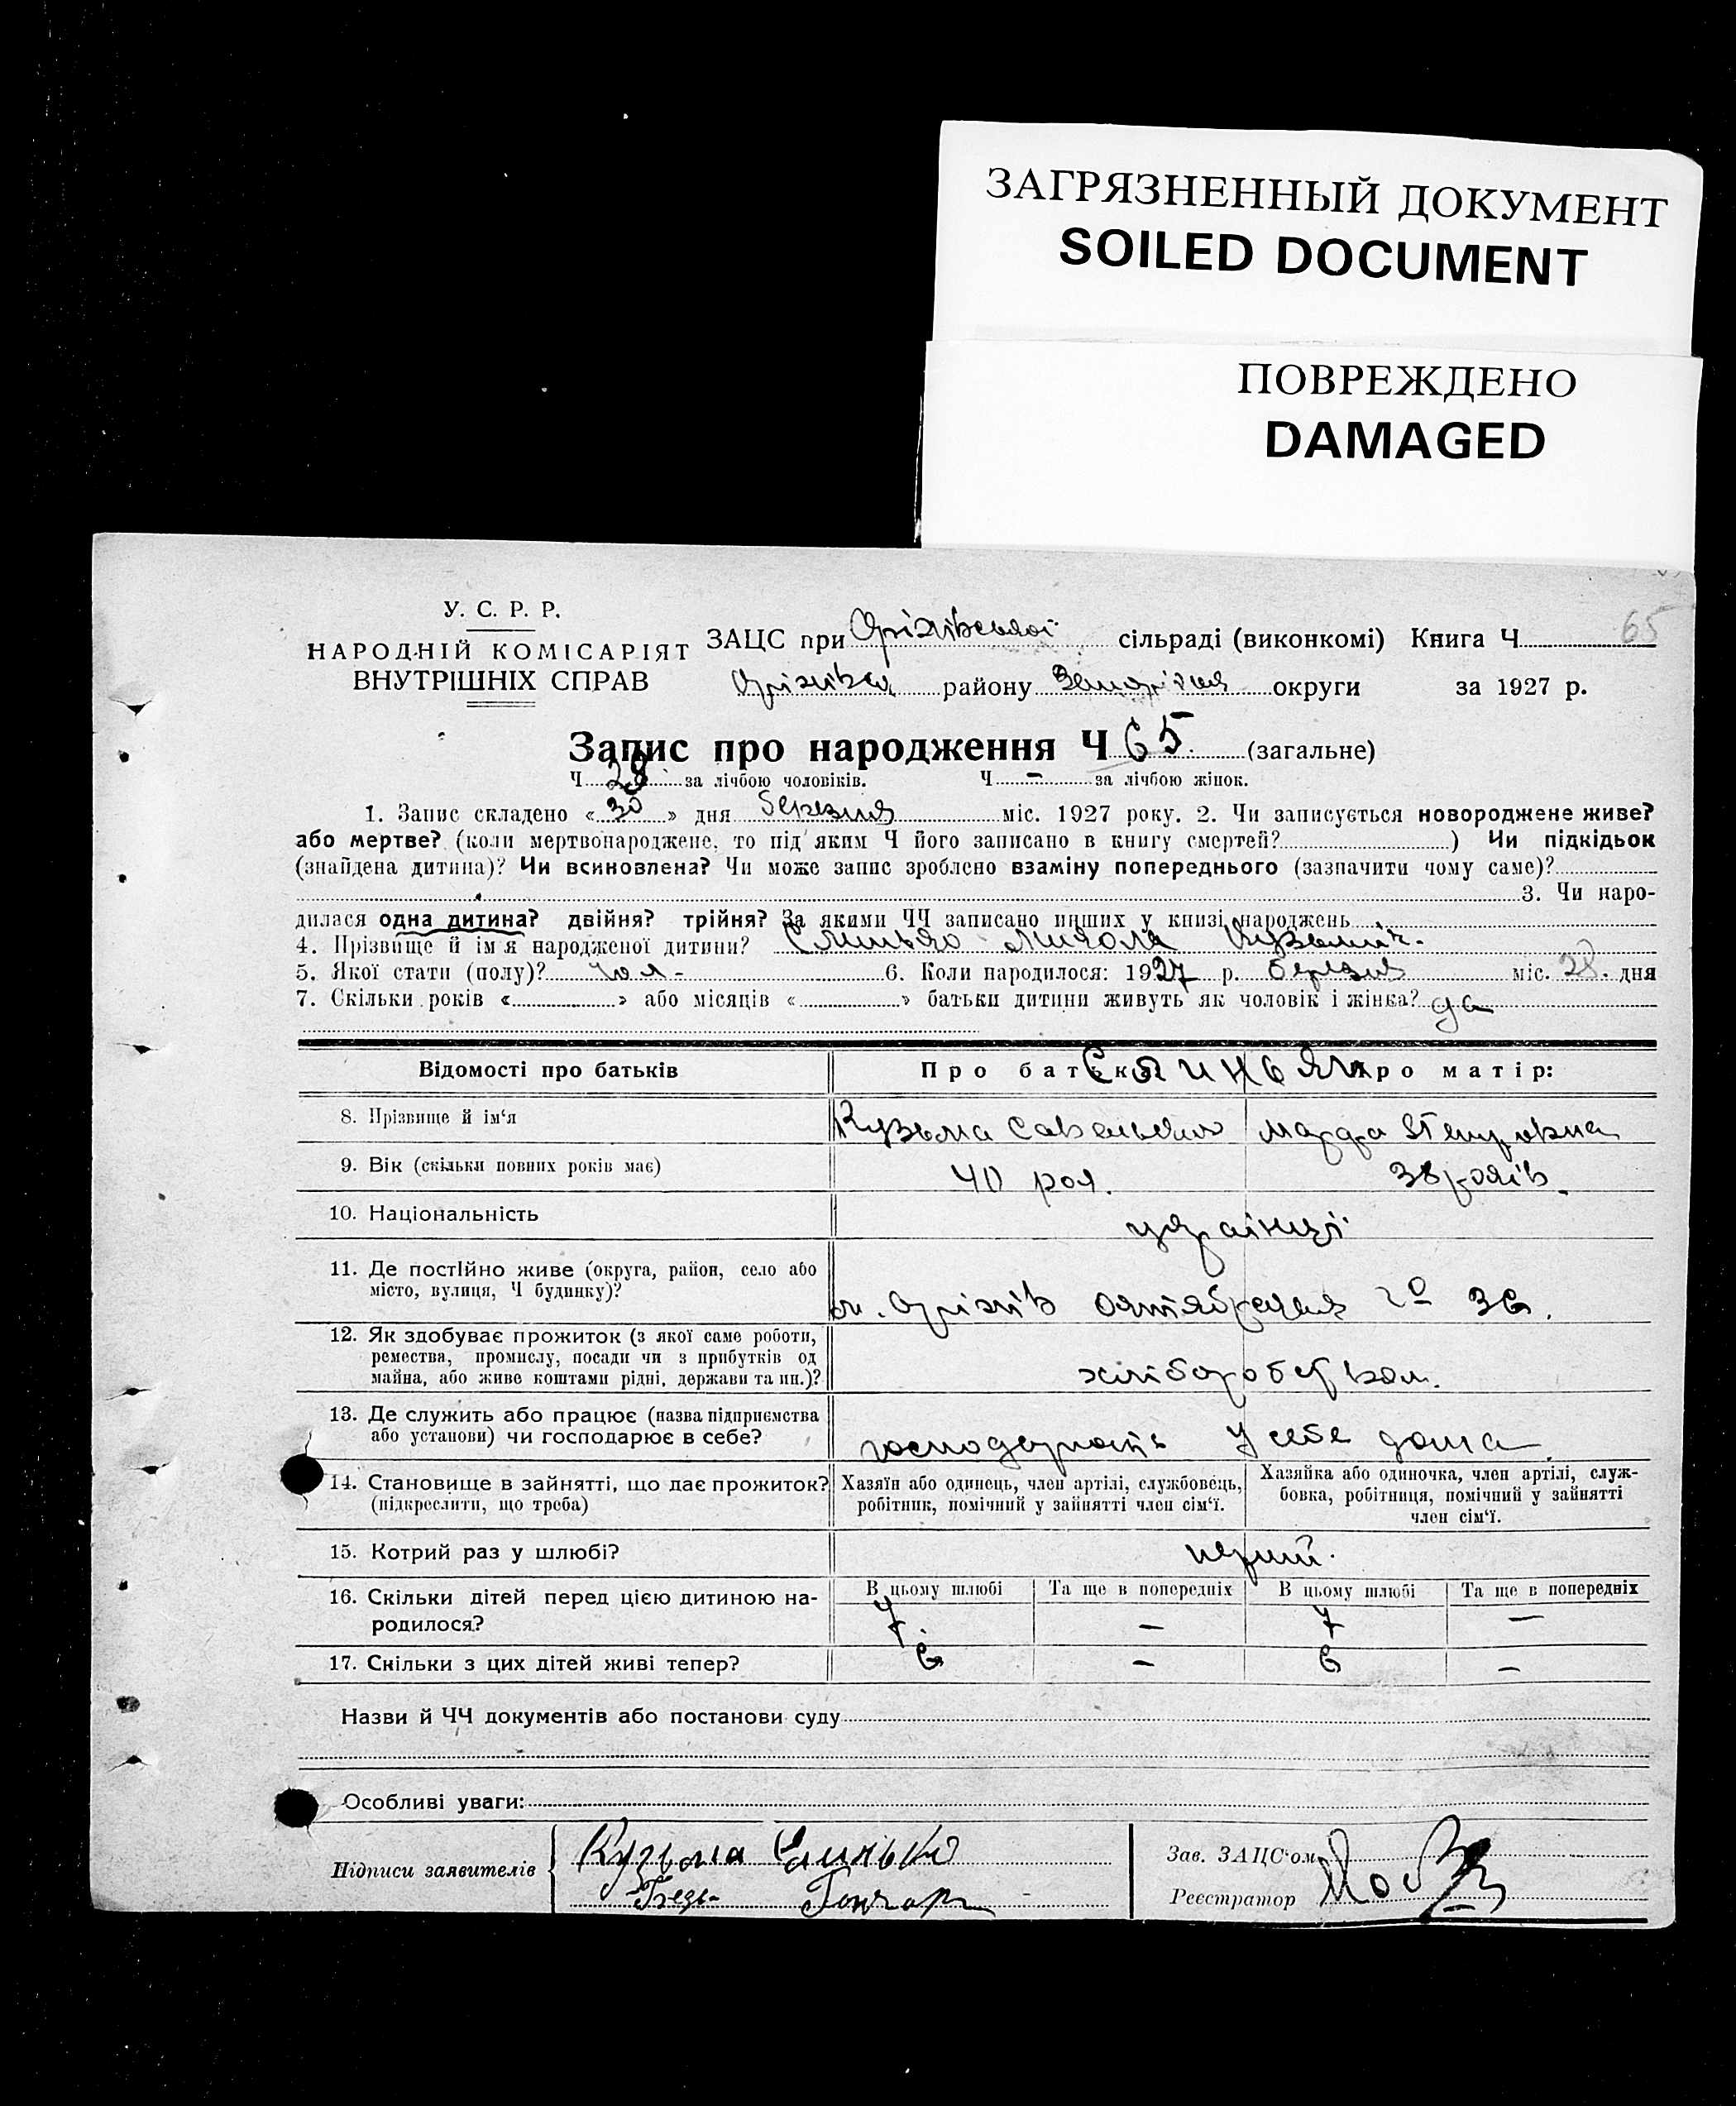 ЗАГРЯЗНЕННЫЙ ДОКУМЕНТ
SOILED DOCUMENT
ПОВРЕЖДЕНО
DAMAGED
У. С. Р. Р.
НАРОДНІЙ КОМІСАРІЯТ
ВНУТРІШНІХ СПРАВ
ЗАЦС при Оріхівської сільраді (виконкомі) Книга Ч. 65
району округи за 1927 р.
Запис про народження Ч 65. (загальне)
Ч. 28 за лічбою чоловіків. Ч. – за лічбою жінок.
1. Запис складено « 30 » дня березня міс. 1927 року. 2. Чи записується новороджене живе?
або мертве? (коли мертвонароджене, то під яким Ч його записано в книгу смертей? ) Чи підкідьок
(знайдена дитина)? Чи всиновлена? Чи може запис зроблено взаміну попереднього (зазначити чому саме)?
3. Чи наро-
дилася одна дитина? двійня? трійня? За якими ЧЧ записано инших у книзі народжень
4. Прізвище й ім'я народженої дитини? Микола Кузьмич.
5. Якої стати (полу)? чол- 6. Коли народилося: 1927 р. березня міс. 28. дня
7. Скільки років « » або місяців « » батьки дитини живуть як чоловік і жінка? да
Відомості про батьків Про батька: Про матір:
8. Прізвище й ім'я Кузьма Марфа Петровна
9. Вік (скільки повних років має) 40 рок. 38 років.
10. Національність українці
11. Де постійно живе (округа, район, село або
місто, вулиця, Ч будинку)?
м. Оріхів Октябрская 36.
12. Як здобуває прожиток (з якої саме роботи,
ремества, промислу, посади чи з прибутків од
майна, або живе коштами рідні, держави та ин.)?
хліборобством.
13. Де служить або працює (назва підприємства
або установи) чи господарює в себе?
у себе дома.
14. Становище в зайнятті, що дає прожиток?
(підкреслити, що треба)
Хазяїн або одинець, член артілі, службовець,
робітник, помічний у зайнятті член сім'ї.
Хазяйка або одиночка, член артілі, служ-
бовка, робітниця, помічний у зайнятті
член сім'ї.
15. Котрий раз у шлюбі? перший.
В цьому шлюбі Та ще в попередніх В цьому шлюбі Та ще в попередніх
16. Скільки дітей перед цією дитиною на-
родилося?
7 – 7 –
17. Скільки з цих дітей живі тепер? 6 – 6 –
Назви й ЧЧ документів або постанови суду
Особливі уваги:
Підписи заявителів Кузьма
Гончар
Зав. ЗАЦС'ом
Реєстратор